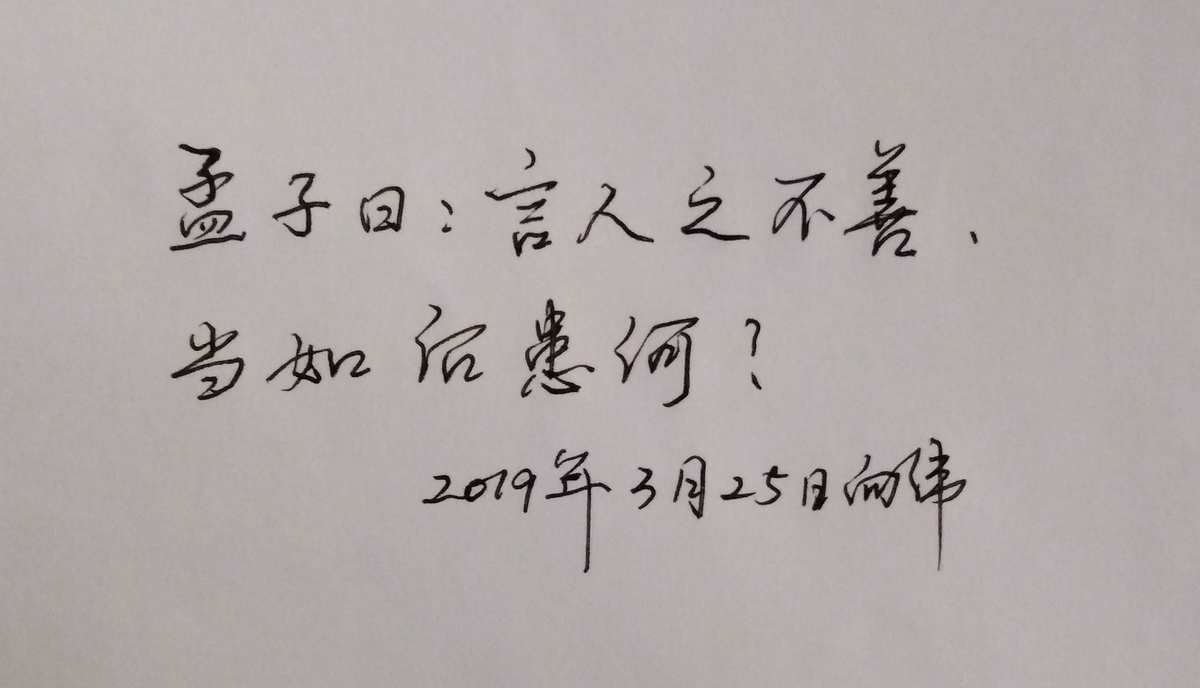 孟子曰：言人之不善、
当如后患何？
2019年3月25日向伟